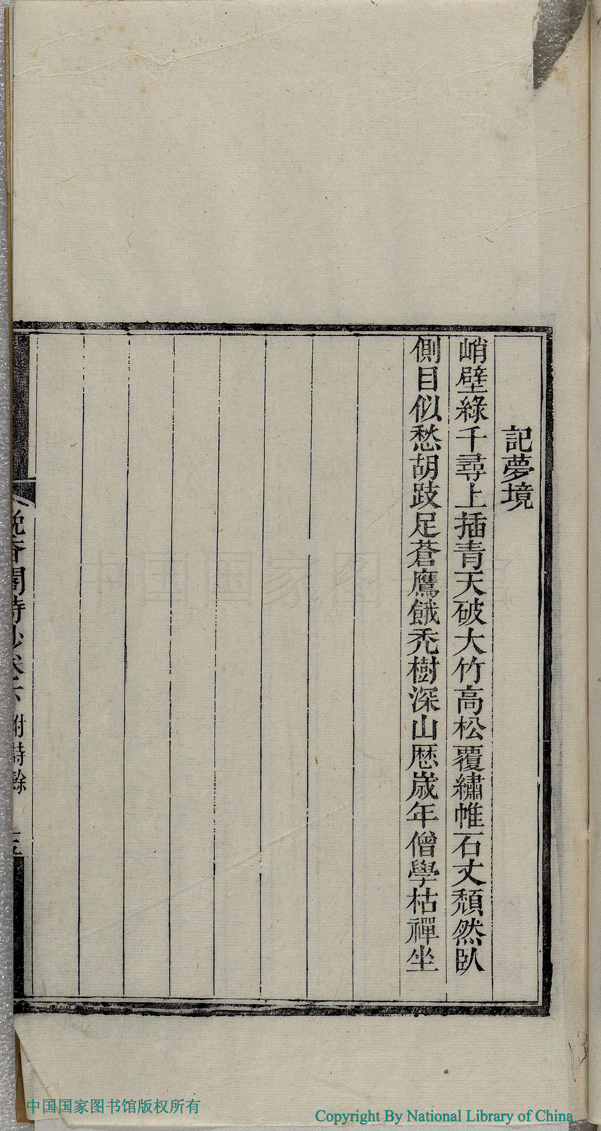 記夢境
峭壁綠千尋上插青天破大竹高松覆繡帷石丈頹然臥
側目似愁胡跂足蒼鷹餓禿樹深山歷歲年僧學枯禪坐
晚香閣詩鈔卷六 附詩餘 十五
中国国家图书馆
中国国家图书馆版权所有
Copyright By National Library of China